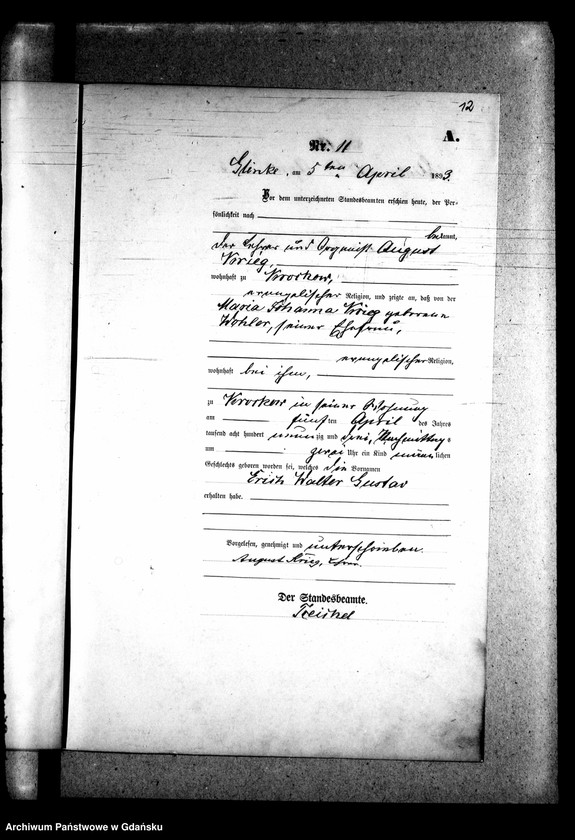 12
A.
Nr. 11
Glinke, am 5ten April 1893.
Vor dem unterzeichneten Standesbeamten erschien heute, der Per-
sönlichkeit nach
bekannt,
der Lehrer und Organist August
Krieg,
wohnhaft zu Krockow,
evangelischer Religion, und zeigte an, daß von der
Maria Johanna Krieg geborene
Wohler, seiner Ehefrau,
evangelischer Religion,
wohnhaft bei ihm,
zu Krockow in seiner Wohnung
am fünften April des Jahres
tausend acht hundert neunzig und drei, Nachmittags
um zwei Uhr ein Kind männlichen
Geschlechts geboren worden sei, welches die Vornamen
Erich Walter Gustav
erhalten habe.
Vorgelesen, genehmigt und unterschrieben.
August Krieg,
Der Standesbeamte.
Archiwum Państwowe w Gdańsku